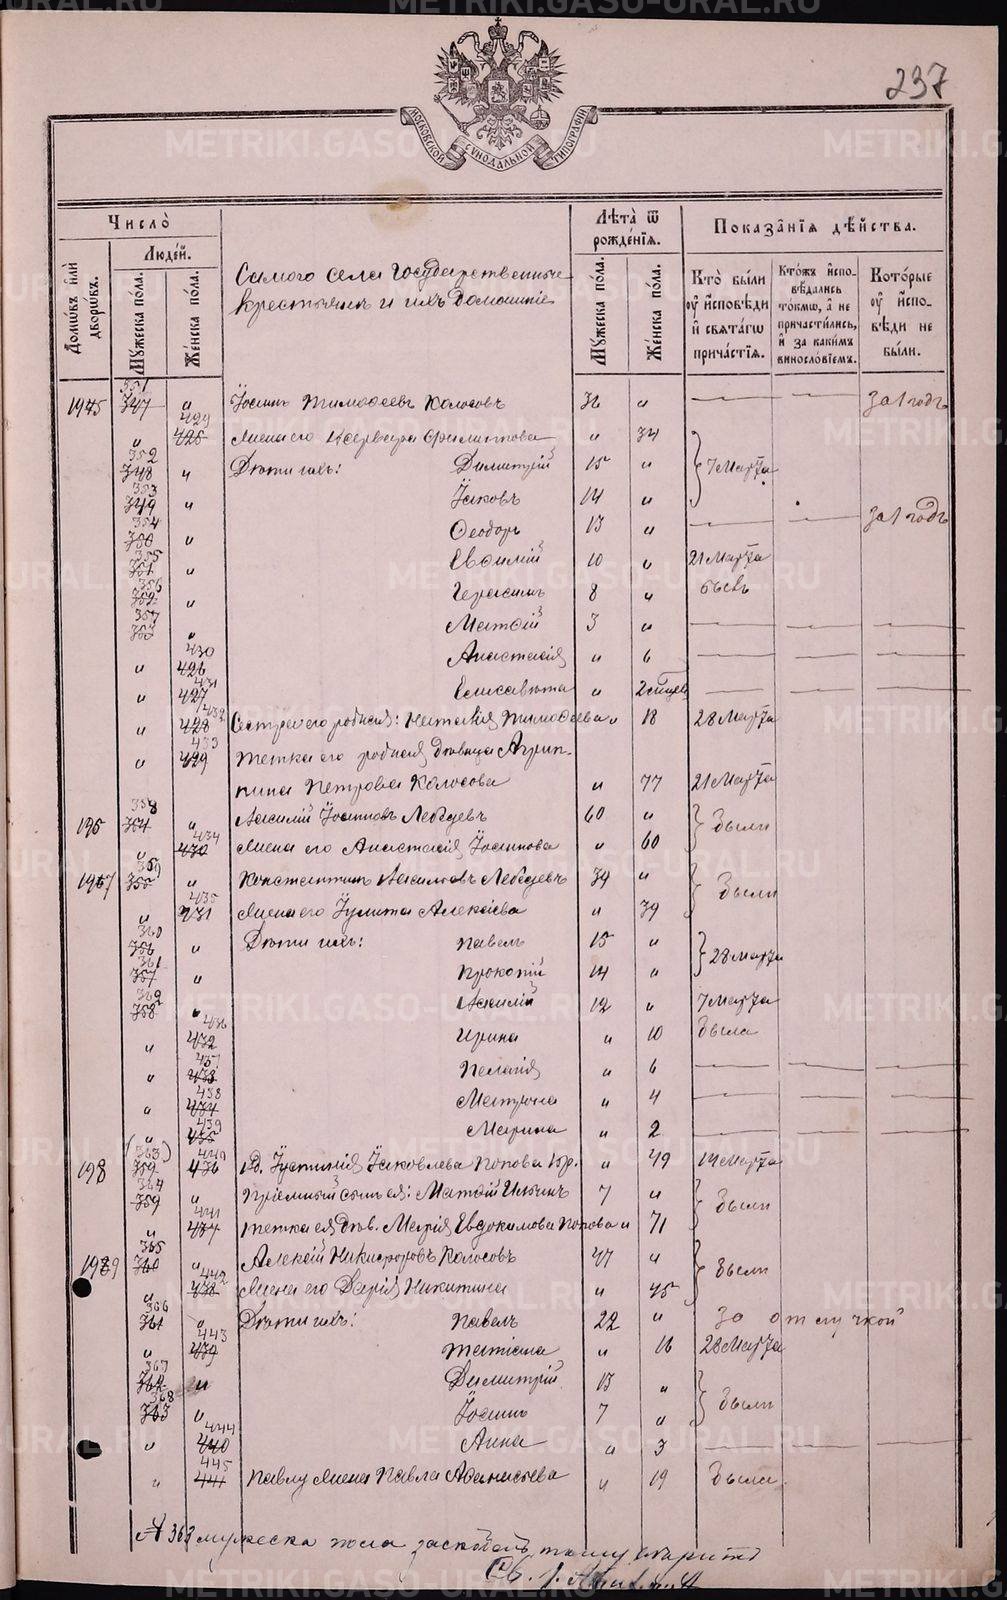 237
МОСКОВСКОЙ СѴНОДАЛЬНОЙ ТИПОГРАФІИ
Число̀
Домѡ́въ и҆лѝ дворѡ́въ.
Люде́й.
Мꙋ́жеска пола.
Же́нска пола.
Самого села Государственные
крестьяне и ихъ домашніе
Лѣ́та ѿ рожде́нїѧ.
Мꙋ́жеска пола.
Же́нска пола.
Показа́нїѧ дѣ́йства.
Кто̀ бы́ли ᲂу҆ и҆сповѣди и҆ свѧта́гѡ прича́стїѧ.
Кто́жъ и҆спо-вѣдались то́кмѡ, а҆ не причасти́лись, и҆ за каки́мъ винослові́емъ.
Кото́рые ᲂу҆ и҆спо-вѣди не бы́ли.
351
195 347 " Іосифъ Тимоѳеевъ Колосовъ 36 " — — за 1 годъ
429
" 425 Жена его Филиппова " 34
352
348 " Дѣти ихъ: Димитрій 15 " 7 Марта
353
349 " Іаковъ 14 "
354
350 " Ѳеодоръ 13 " — — за 1 годъ
355
351 " Евѳимій 10 " 21 Марта
356
352 " Герасимъ 8 " былъ
357
353 " Матѳій 3 " — — —
430
" 426 Анастасія " 6 — — —
431
" 427 Елисавета " 2 — — —
432
" 428 Сестра его родная: Наталія Тимоѳеева " 18 28 Марта
433
" 429 Тетка его родная дѣвица Агрип-
пина Петрова Колосова " 77 21 Марта
358
196 354 " Василій Іосифовъ Лебедевъ 60 " были
434
" 430 Жена его Анастасія Іосифова " 60
359
197 355 " Константинъ Васильевъ Лебедевъ 39 " были
435
" 431 Жена его Іулита Алексѣева " 39
360
356 " Дѣти ихъ: Павелъ 15 " 28 Марта
361
357 " Прокопій 14 "
362
358 " Василій 12 " 7 Марта
436
" 432 Ирина " 10 была
437
" 433 Пелагія " 6 — — —
438
" 434 Матрона " 4 — — —
439
" 435 Марина " 2 — — —
(363) 440
198 359 436 Іаковлева Попова " 49 14 Марта
364
359 " Пріемный сынъ ея: Матѳій Ильинъ 7 " были
441
" 437 Тетка ея дѣв. Марія Евдокимова Попова " 71
365
199 360 " Алексій Никифоровъ Колосовъ 47 " были
442
" 438 Жена его Дарія Никитина " 45
366
361 " Дѣти ихъ: Павелъ 22 " за отлучкой
443
" 439 Татіана " 16 28 Марта
367
362 " Димитрій 13 " были
368
363 " Іосифъ 7 "
444
" 440 Анна " 3 — — —
445
" 441 Павлу жена Павла Аѳанасьева " 19 была
363 мужеска пола
METRIKI.GASO-URAL.RU